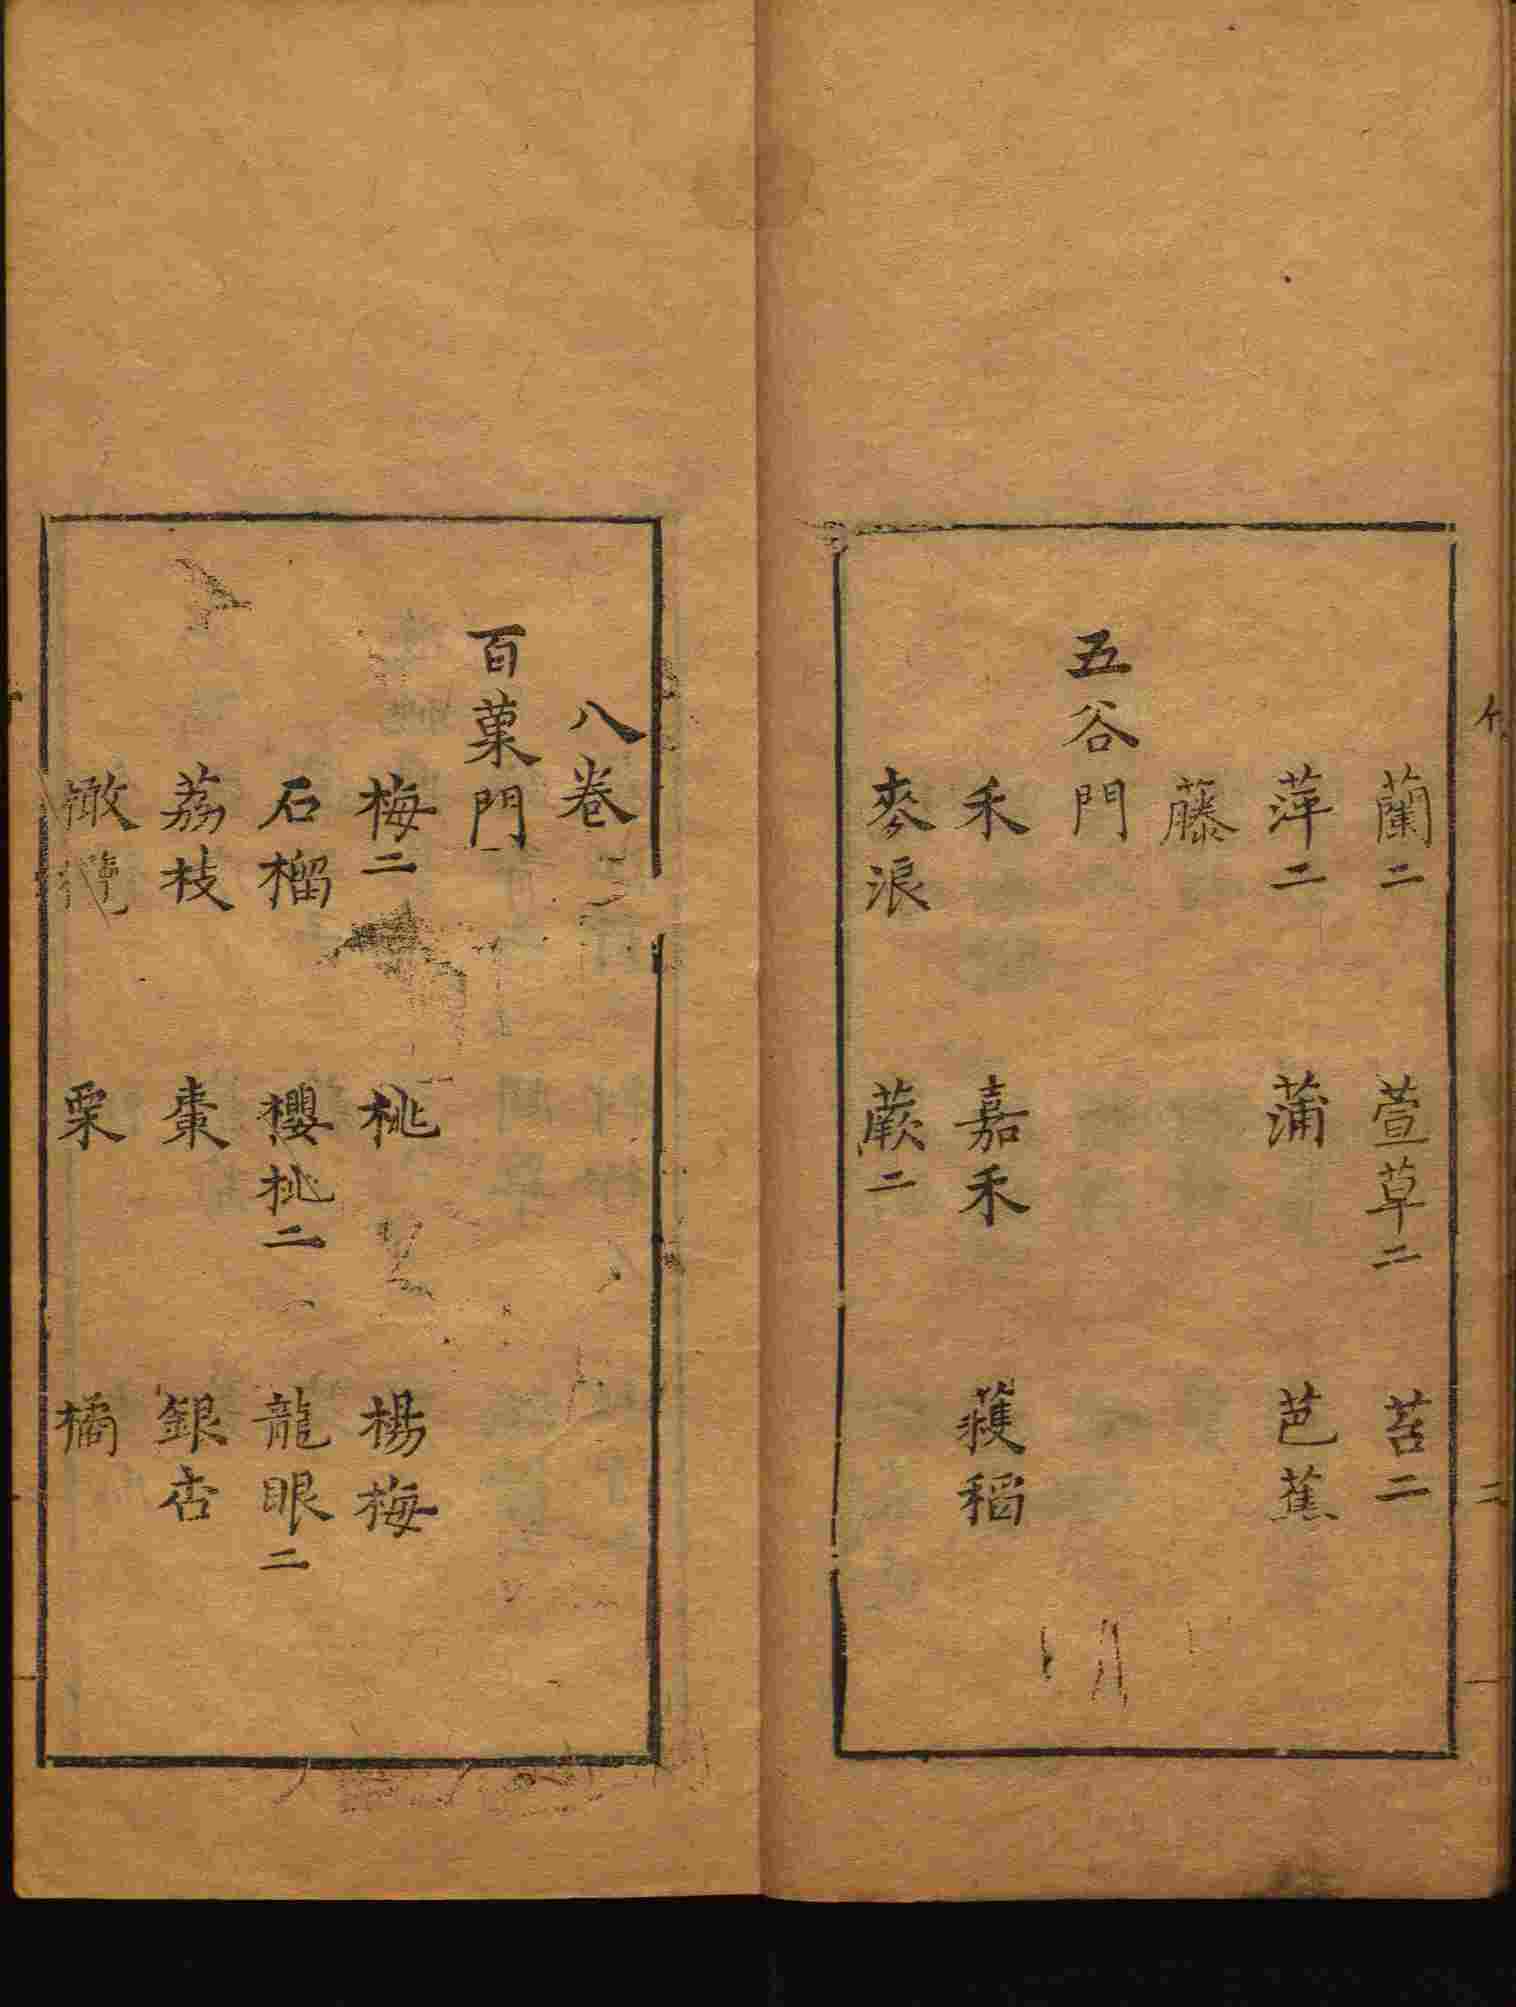 蘭二 萱草二 苔二
萍二 蒲 芭蕉
藤
五谷門
禾 嘉禾 穫稻
麥浪 蕨二
八卷
百菓門
梅二 桃 楊梅
石榴 櫻桃二 龍眼二
荔枝 棗 銀杏
橄欖 栗 橘